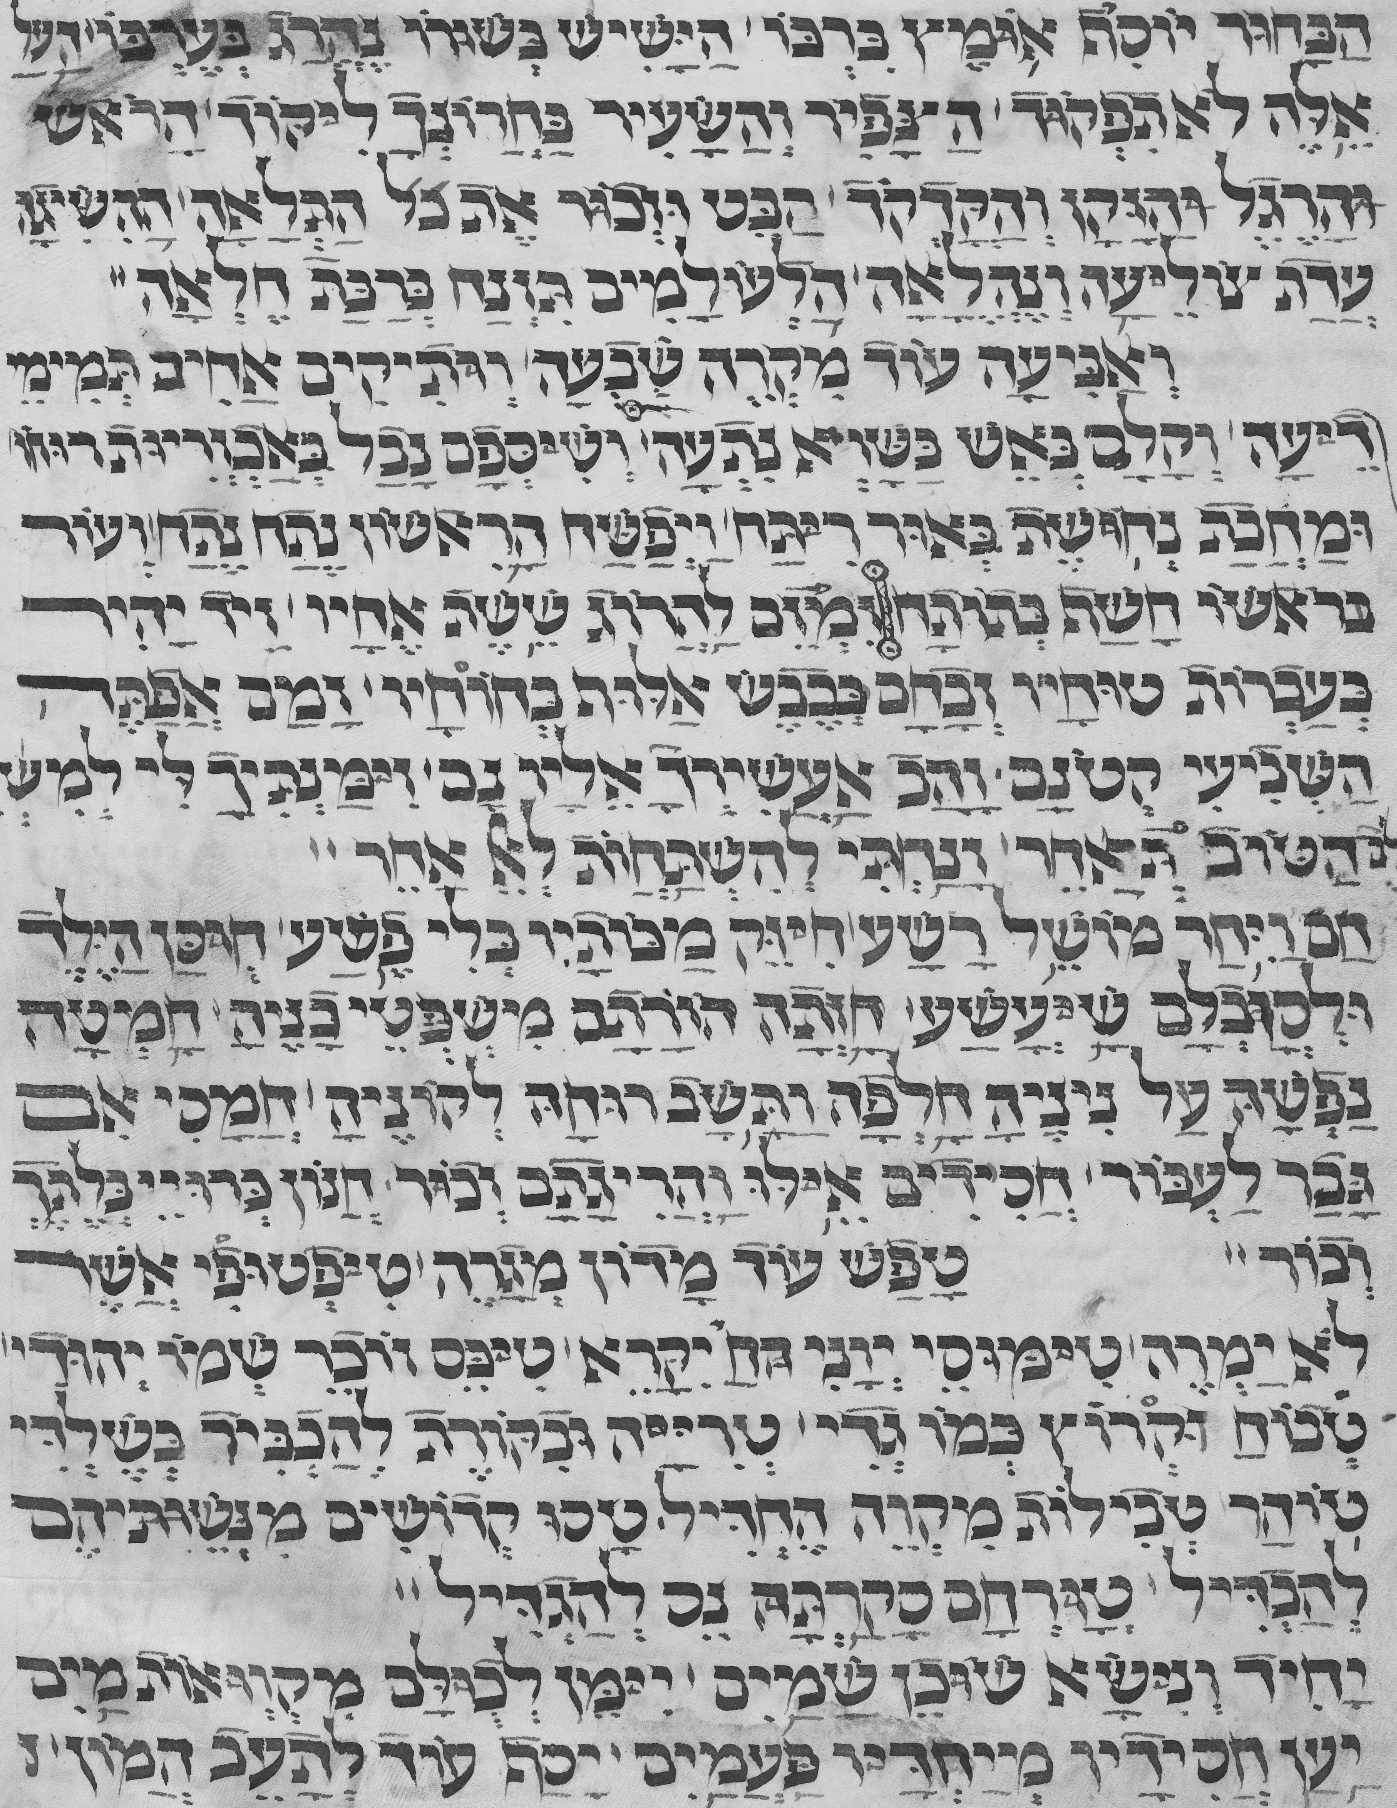 הבחור יוכת אומץ ברבו הישיש בשורו נהרג בערבו העל
אלה לא תפקוד הצפיר והשעיר בחרונך ליקוד הראש
והרגל והזקן והקדקד הבט וזכור את כל התלאה ההשיגו
עדת צולעה ונהלאה הלעולמים תזנח ברבת חלאה
ואביעה עוד מקרה שבעה ותיקים אחים תמימי
דיעה וקלם באש נתעה נבל באכזריות רוחו
ובמחבת נחושת באור ריתח ויפשח הראשון נתח נתח ועור
בראשו חשת בתותח וזמם להרוג ששת אחיו ויד יהיר
בעברות טוחיו ככבש אלות בחוחיו ונם אפתה
השביעי קטונם והם אעשירך אליו נם ומיניתיך לי למש
הטוב תיאחר ונחתי להשתחות לאל אחר
חם ויחר מושל רשע חינק בלי פשע היולד
שיעשע חזתה הורתם מישפטי בניה חמיטה
נפשה על ניניה חלפה ותשב רוחה לקוניה חמסי אם
לעבור חסידים אילו והריגתם זכור חנון
וכור טפש עוד מדון מגרה טיפטופי אשר
לא ימרה טימוסי יוני טיכס וזכר שמו יהודי
טבוח וקרוץ כמו גדי ובקורת להכביד בשלדי
טוהר טבילות מקוה החדיל טכסו קדושים מנשותיהם
להבדיל טורחם נס להגדיל
יחיד ונישא שוכן שמים מקוואות מים
יען חסידיו מייחדיו פעמים עוד לתעב המון